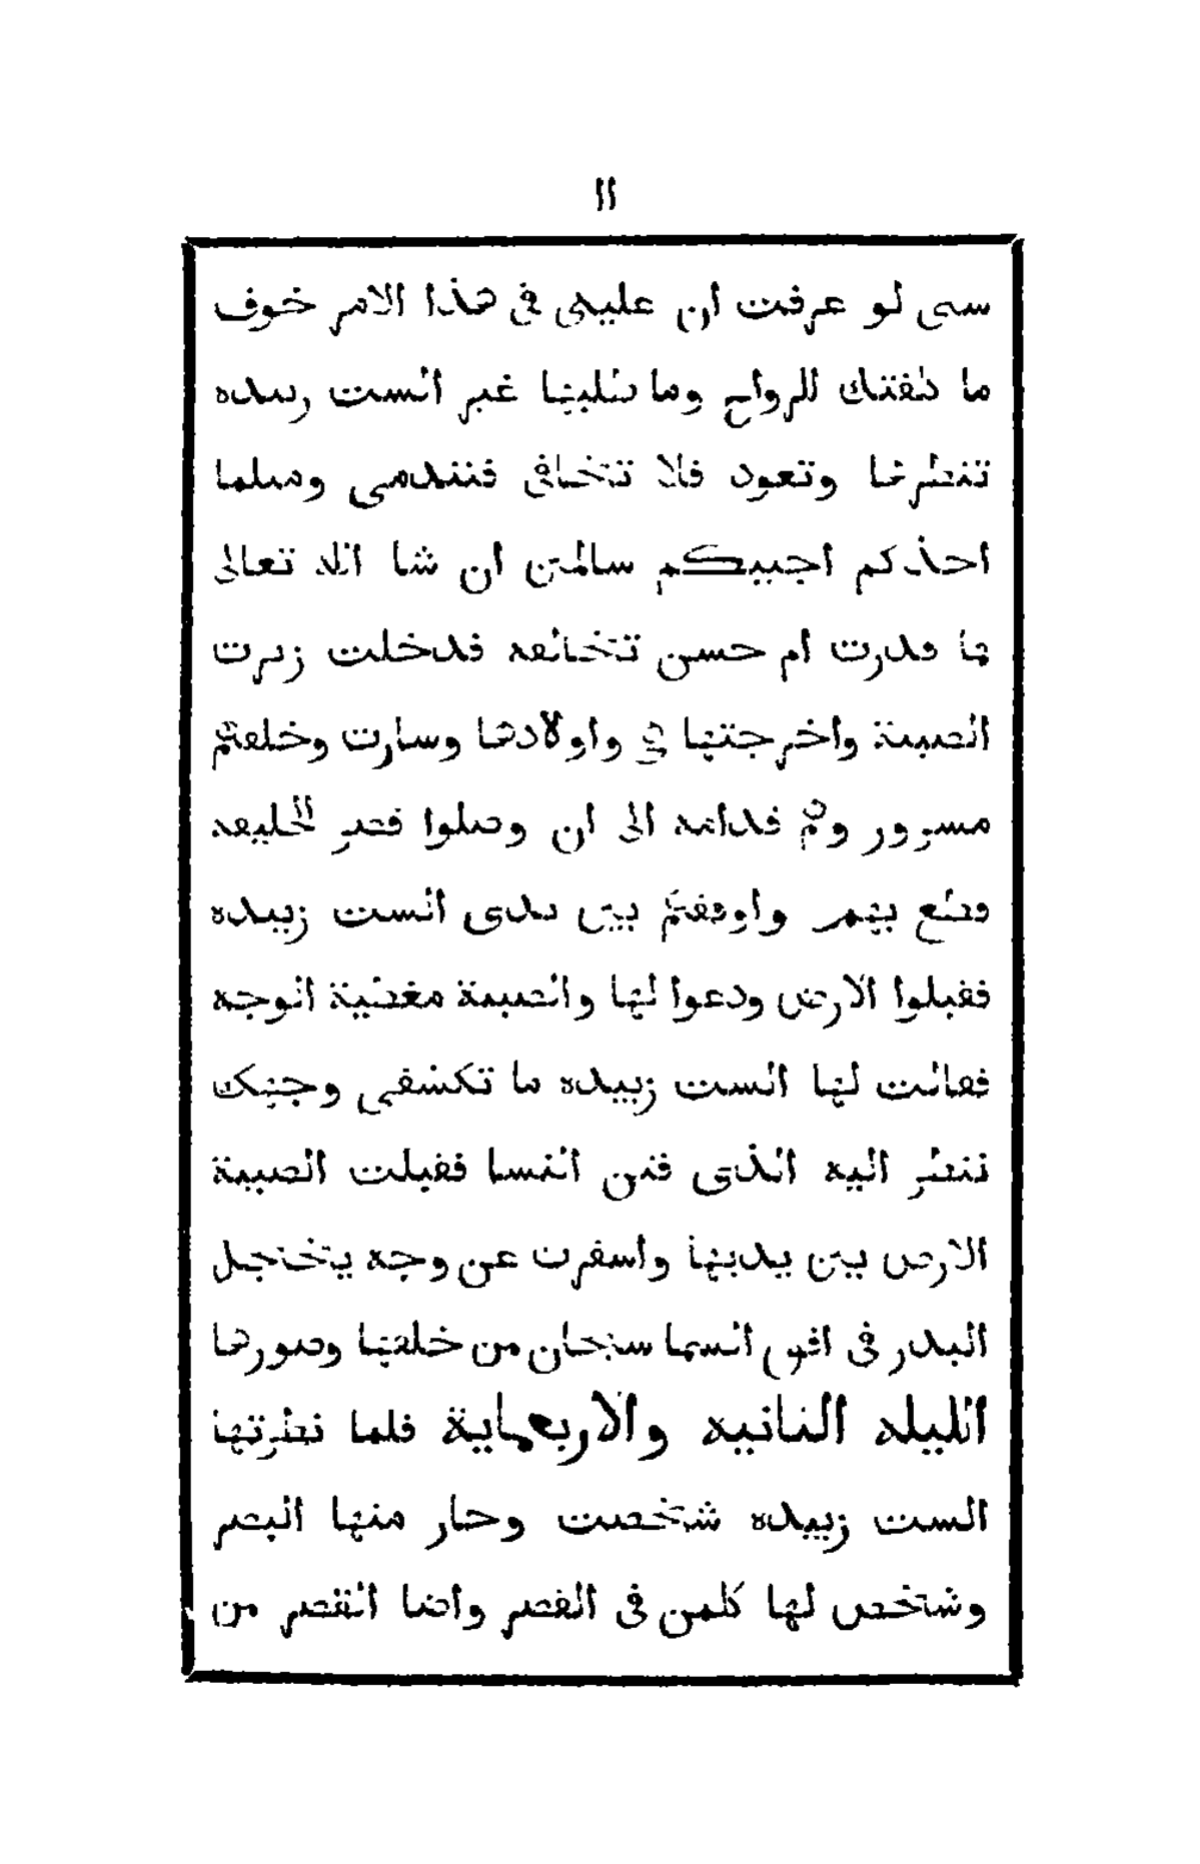 ١١
ستى لو عرفت ان عليكى فى هذا الامر خوف
ما كلفتك للرواح وما طلبتها غير الست زبيده
تنظرها وتعود فلا تتخافى فتندمى ومثلما
اخذكم اجيبكم سالمين ان شا الله تعالى
فما قدرت ام حسن تخالفه فدخلت زيرت
الصبية واخرجتها هى واولادها وسارت وخلفهم
مسرور وهم قدامه الى ان وصلوا قصر الخليفه
فطلع بهم واوقفهم بين يدى الست زبيده
فقبلوا الارض ودعوا لها والصبية مغطية الوجه
فقالت لها الست زبيده ما تكشفى وجهك
ننظر اليه الذى فتن النسا فقبلت الصبية
الارض بين يديها واسفرت عن وجه يخجل
البدر فى افق السما سبحان من خلقها وصورها
الليله الثانيه والاربعماية فلما نظرتها
الست زبيده شخصت وحار منها البصر
وشخص لها كلمن فى القصر واضا القصر من